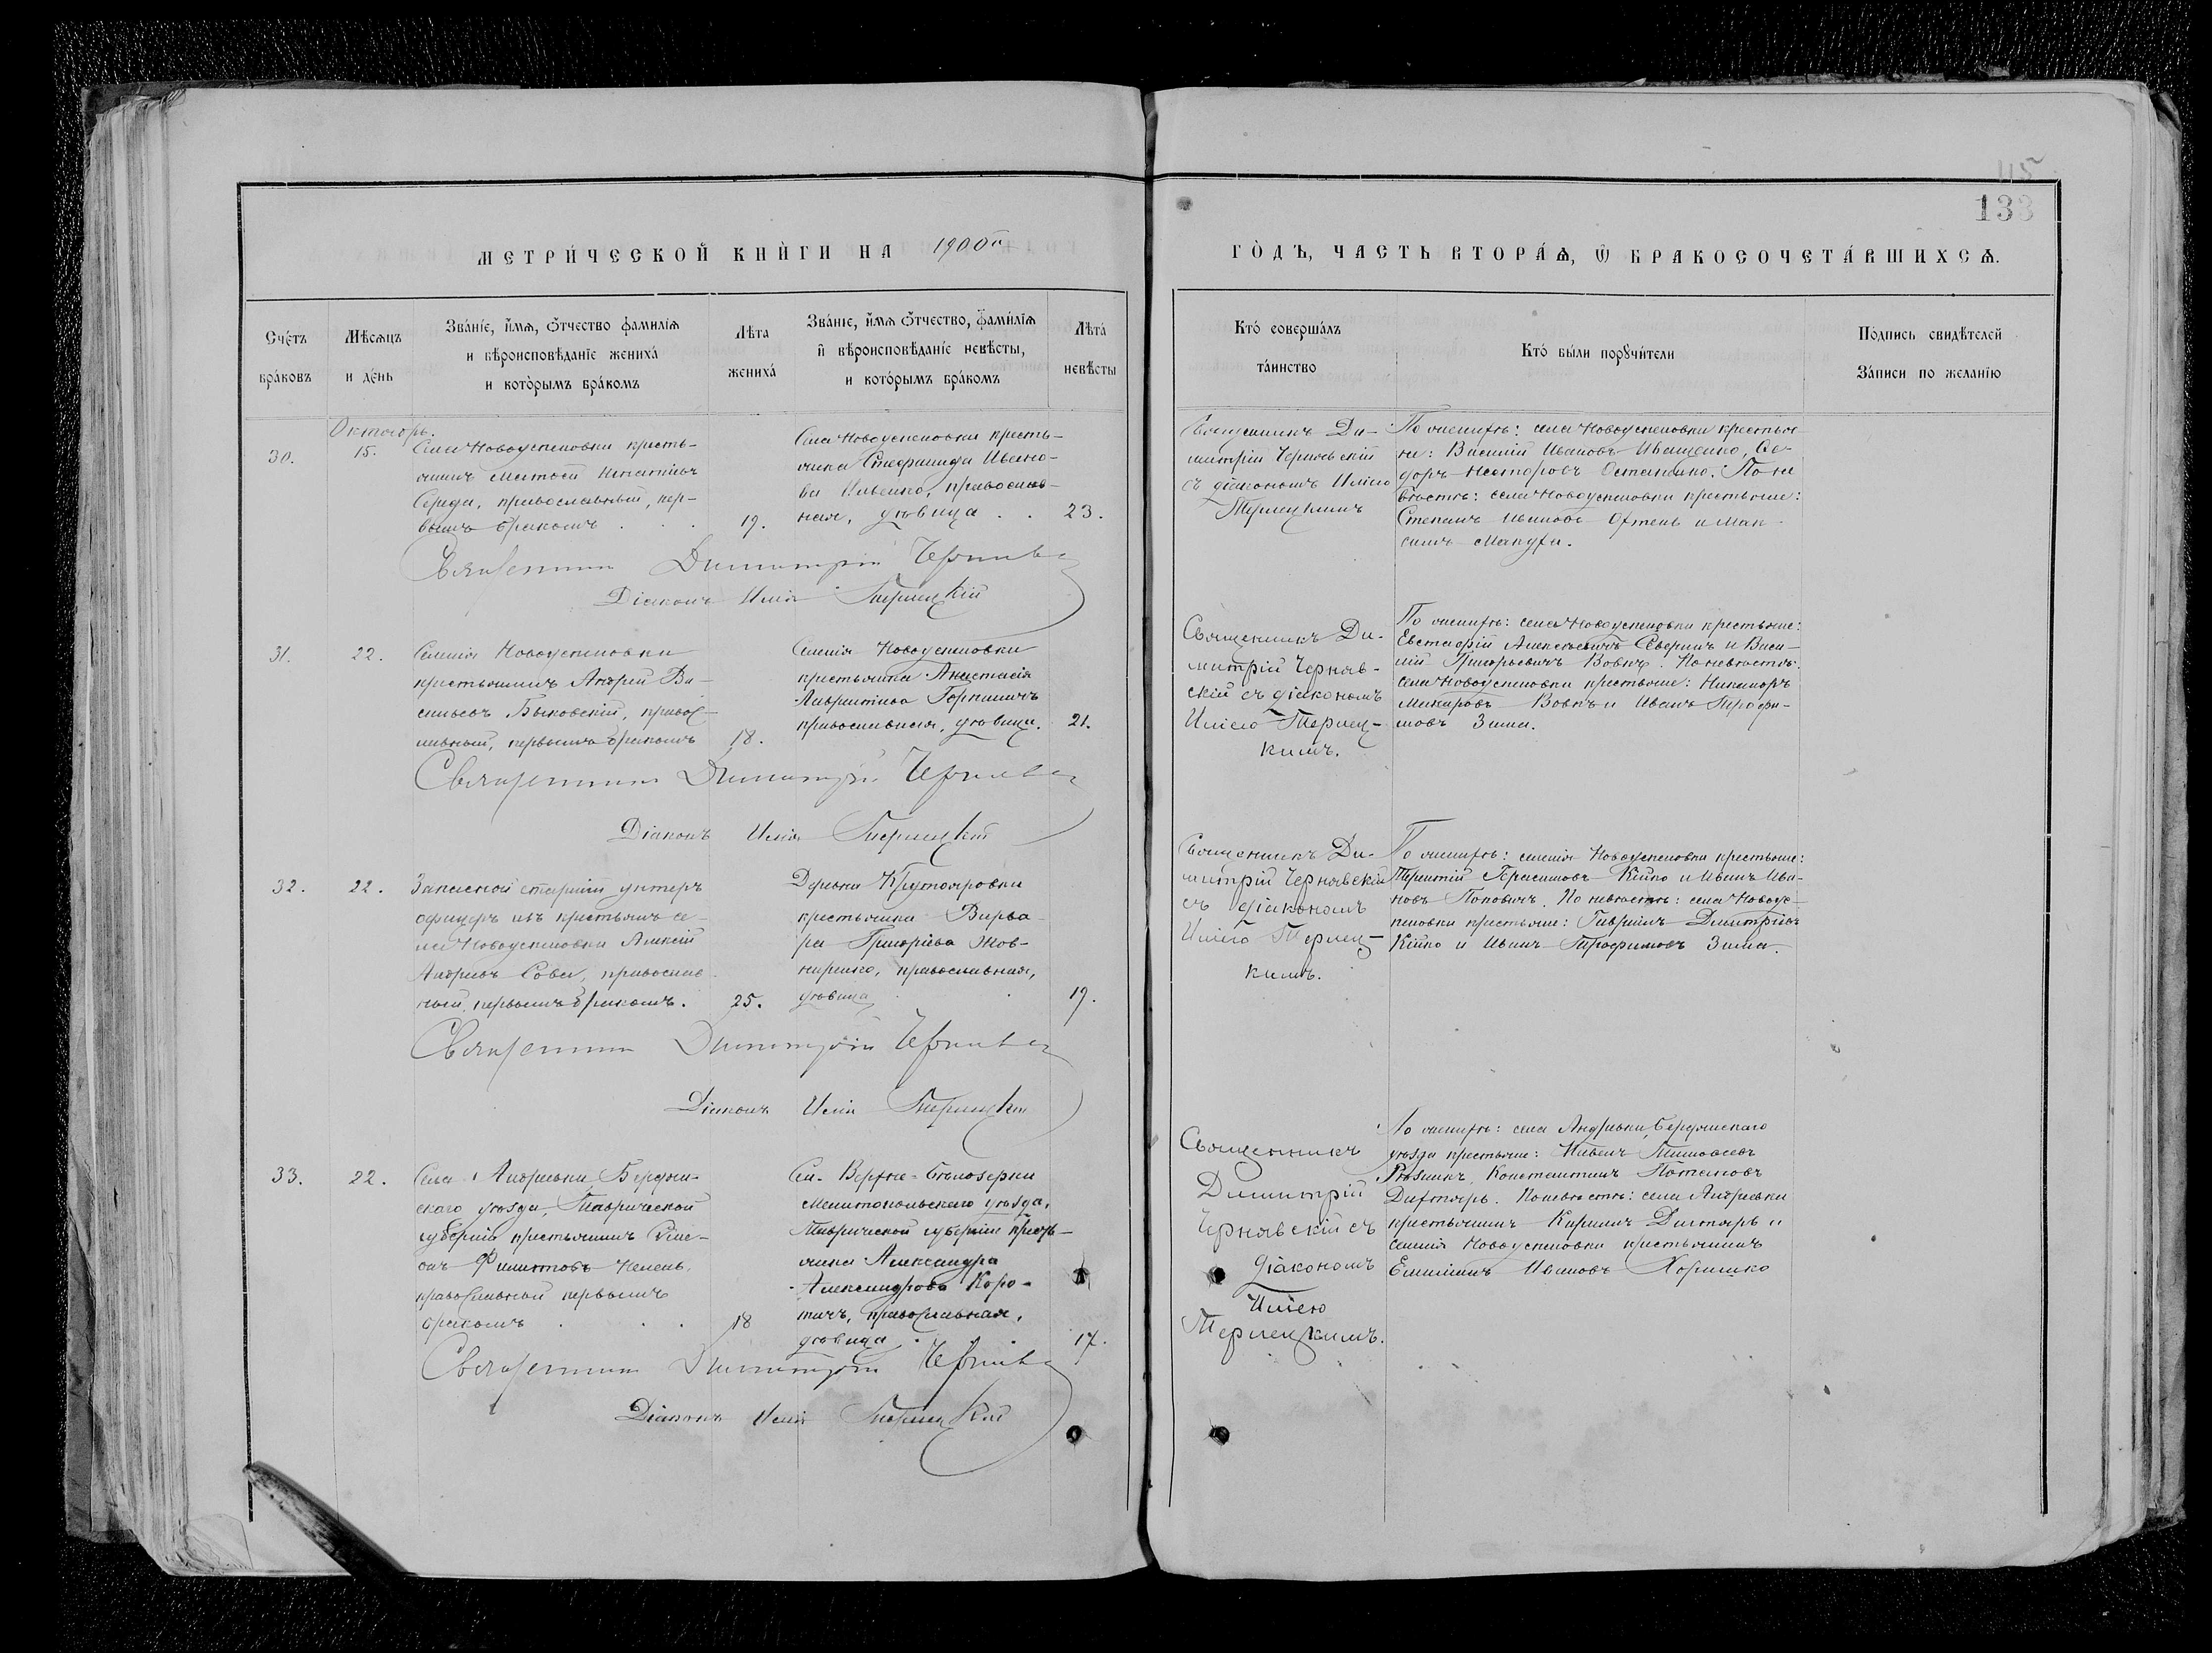 115
133
МЕТРИ́ЧЕСКОЙ КНИ́ГИ НА 1900й
ГО́ДЪ, ЧАСТЬ ВТОРА́Ѧ, Ѿ БРАКОСОЧЕТА́ВШИХСѦ.
Сче́тъ
бра́ковъ
Мѣ́сѧцъ
и де́нь
Зва́нїе, и́мѧ, ѻ҆́тчество фами́лїѧ
и вѣроисповѣ́данїе жениха́
и кото́рымъ бра́комъ
Лѣта
жениха́
Зва́нїе, и́мѧ ѻ҆́тчество, фами́лїѧ
и҆ вѣроисповѣ́данїе невѣ́сты,
и кото́рымъ бра́комъ
Лѣта́
невѣ́сты
Кто́ соверша́лъ
та́инство
Кто́ бы́ли порꙋчи́тели
По́дпись свидѣ́телей
За́писи по жела́нїю
Октябрь.
30.
15.
Села Новоуспеновки кресть-
янинъ Матѳей Игнатіевъ
Середа, православный, пер-
вымъ бракомъ . . .
19.
Села Новоуспеновки кресть-
янка Стефанида Ивано-
ва Ильенко, православ-
ная, дѣвица . .
23.
Священникъ Ди-
митрій Чернявскій
съ діакономъ Иліею
Терлецкимъ
По женихѣ: села Новоуспеновки крестья-
не: Василій Ивановъ Иващенко, Ѳе-
доръ Несторовъ Остапенко. По не
вѣстѣ: села Новоуспеновки крестьяне:
Степанъ Ивановъ и Мак-
симъ
Священникъ Димитрій Чернявс
Діаконъ Илія Терлецкій
31.
22.
Селенія Новоуспеновки
крестьянинъ Андрей Ва-
сильевъ Быковскій, правос-
лавный, первымъ бракомъ
18.
Селенія Новоуспеновки
крестьянка Анастасія
Лаврентіева
православная, дѣвица.
21.
Священникъ Ди-
митрій Черняв-
скій съ діакономъ
Иліею Терлец-
кимъ.
По женихѣ: села Новоуспеновки крестьяне:
Евстафій Алексѣевичъ Северинъ и Васи-
лій Григорьевичъ Вовкъ. По невѣстѣ:
села Новоуспеновки крестьяне: Никаноръ
Макаровъ Вовкъ и Иванъ Трофи-
мовъ Зима.
Священникъ Димитрій Чернявс
Діаконъ Илія Терлецкій
32.
22.
Запасной старшій унтеръ
офицеръ изъ крестьянъ се-
ла Новоуспеновки Алексій
Андреевъ Сова, православ-
ный, первымъ бракомъ.
25.
Деревни Крутояровки
крестьянка Варва-
ра Григоріева Жов-
ниренко, православная,
дѣвица
19.
Священникъ Ди-
митрій Чернявскій
съ діакономъ
Иліею Терлец-
кимъ.
По женихѣ: селенія Новоуспеновки крестьяне:
Терентій Герасимовъ Кійко и Иванъ Ива-
новъ Поповичъ. По невѣстѣ: села Новоус-
пеновки крестьяне: Гавріилъ Димитріевъ
Кійко и Иванъ Трофимовъ Зима.
Священникъ Димитрій Чернявс
Діаконъ Илія Терлецкій
33.
22.
Села Андреевки Бердян-
скаго уѣзда, Таврической
губерніи крестьянинъ
Филиповъ
православный первымъ
бракомъ . . .
18
Сел. Верхне-Бѣлозерки
Мелитопольскаго уѣзда,
Таврической губерніи кресть-
янка Александра
Александрова Коро-
тичъ, православная,
дѣвица .
17.
Священникъ
Димитрій
Чернявскій съ
діакономъ
Иліею
Терлецкимъ.
По женихѣ: села Андреевки, Бердянскаго
уѣзда крестьяне: Павелъ Тимофеевъ
Константинъ Потаповъ
Дихтярь. По невѣстѣ: села Андреевки
крестьянинъ Кириллъ Дихтярь и
селенія Новоуспеновки крестьянинъ
Емеліянъ Ивановъ Хоришко
Священникъ Димитрій Чернявс
Діаконъ Илія Терлецкій